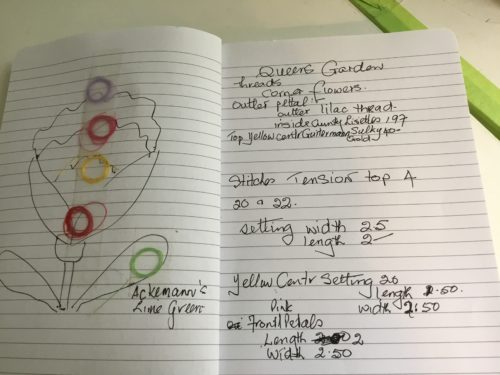 Ackemann's
Lime Green
Queens Garden
threads
corner flowers.
outter pettal:
outter lilac thread.
inside Aunty 197
Top yellow centr Sulky 40
Gold
Stitches Tension top 4
20 22.
setting width 25
length 2
Yellow Centr Setting 20
length 2.50.
Pink width 2.50
Front Petals
Length 2
Width 2.50